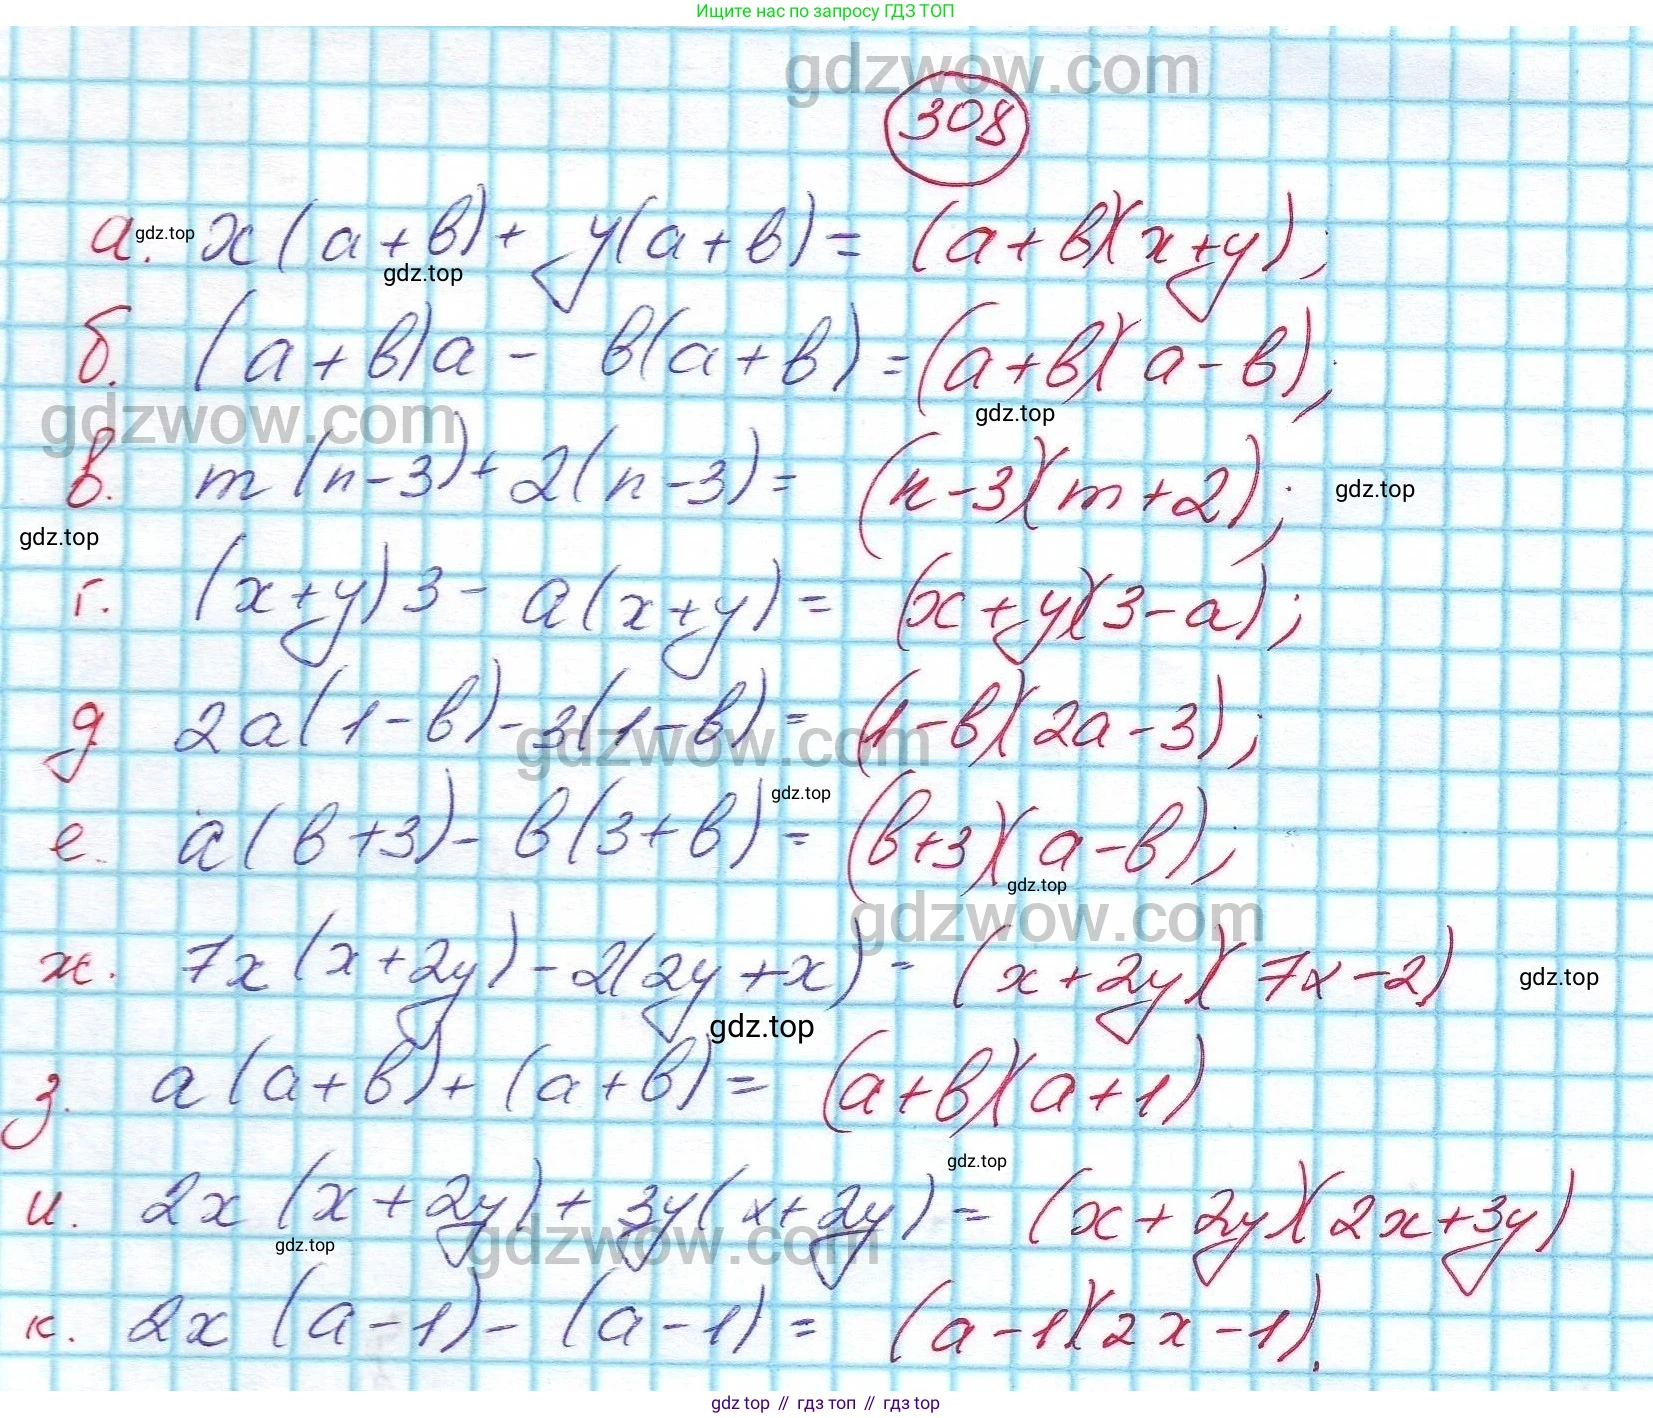 Ищите нас по запросу ГДЗ ТОП
gdzwow.com
308
а. gdz.top x(a+b)+ y(a+b)= (a+b)(x+y);
gdz.top
б. (a+b)a - b(a+b)=(a+b)(a-b);
gdzwow.com gdz.top
в. m(n-3)+2(n-3)= (n-3)(m+2); gdz.top
gdz.top
г. (x+y)3- a(x+y)= (x+y)(3-a);
д 2a(1-b)-3(1-b)= (1-b)(2a-3);
gdzwow.com
gdz.top
е. a(b+3)- b(3+b)= (b+3)(a-b);
gdz.top
gdzwow.com
ж. 7x(x+2y)-2(2y+x)= (x+2y)(7x-2) gdz.top
gdz.top
з. a(a+b)+(a+b)= (a+b)(a+1)
gdz.top
и. 2x(x+2y)+3y(x+2y)= (x+2y)(2x+3y)
gdz.top gdzwow.com
к. 2x(a-1)-(a-1)= (a-1)(2x-1).
gdz top // гдз топ // gdz top